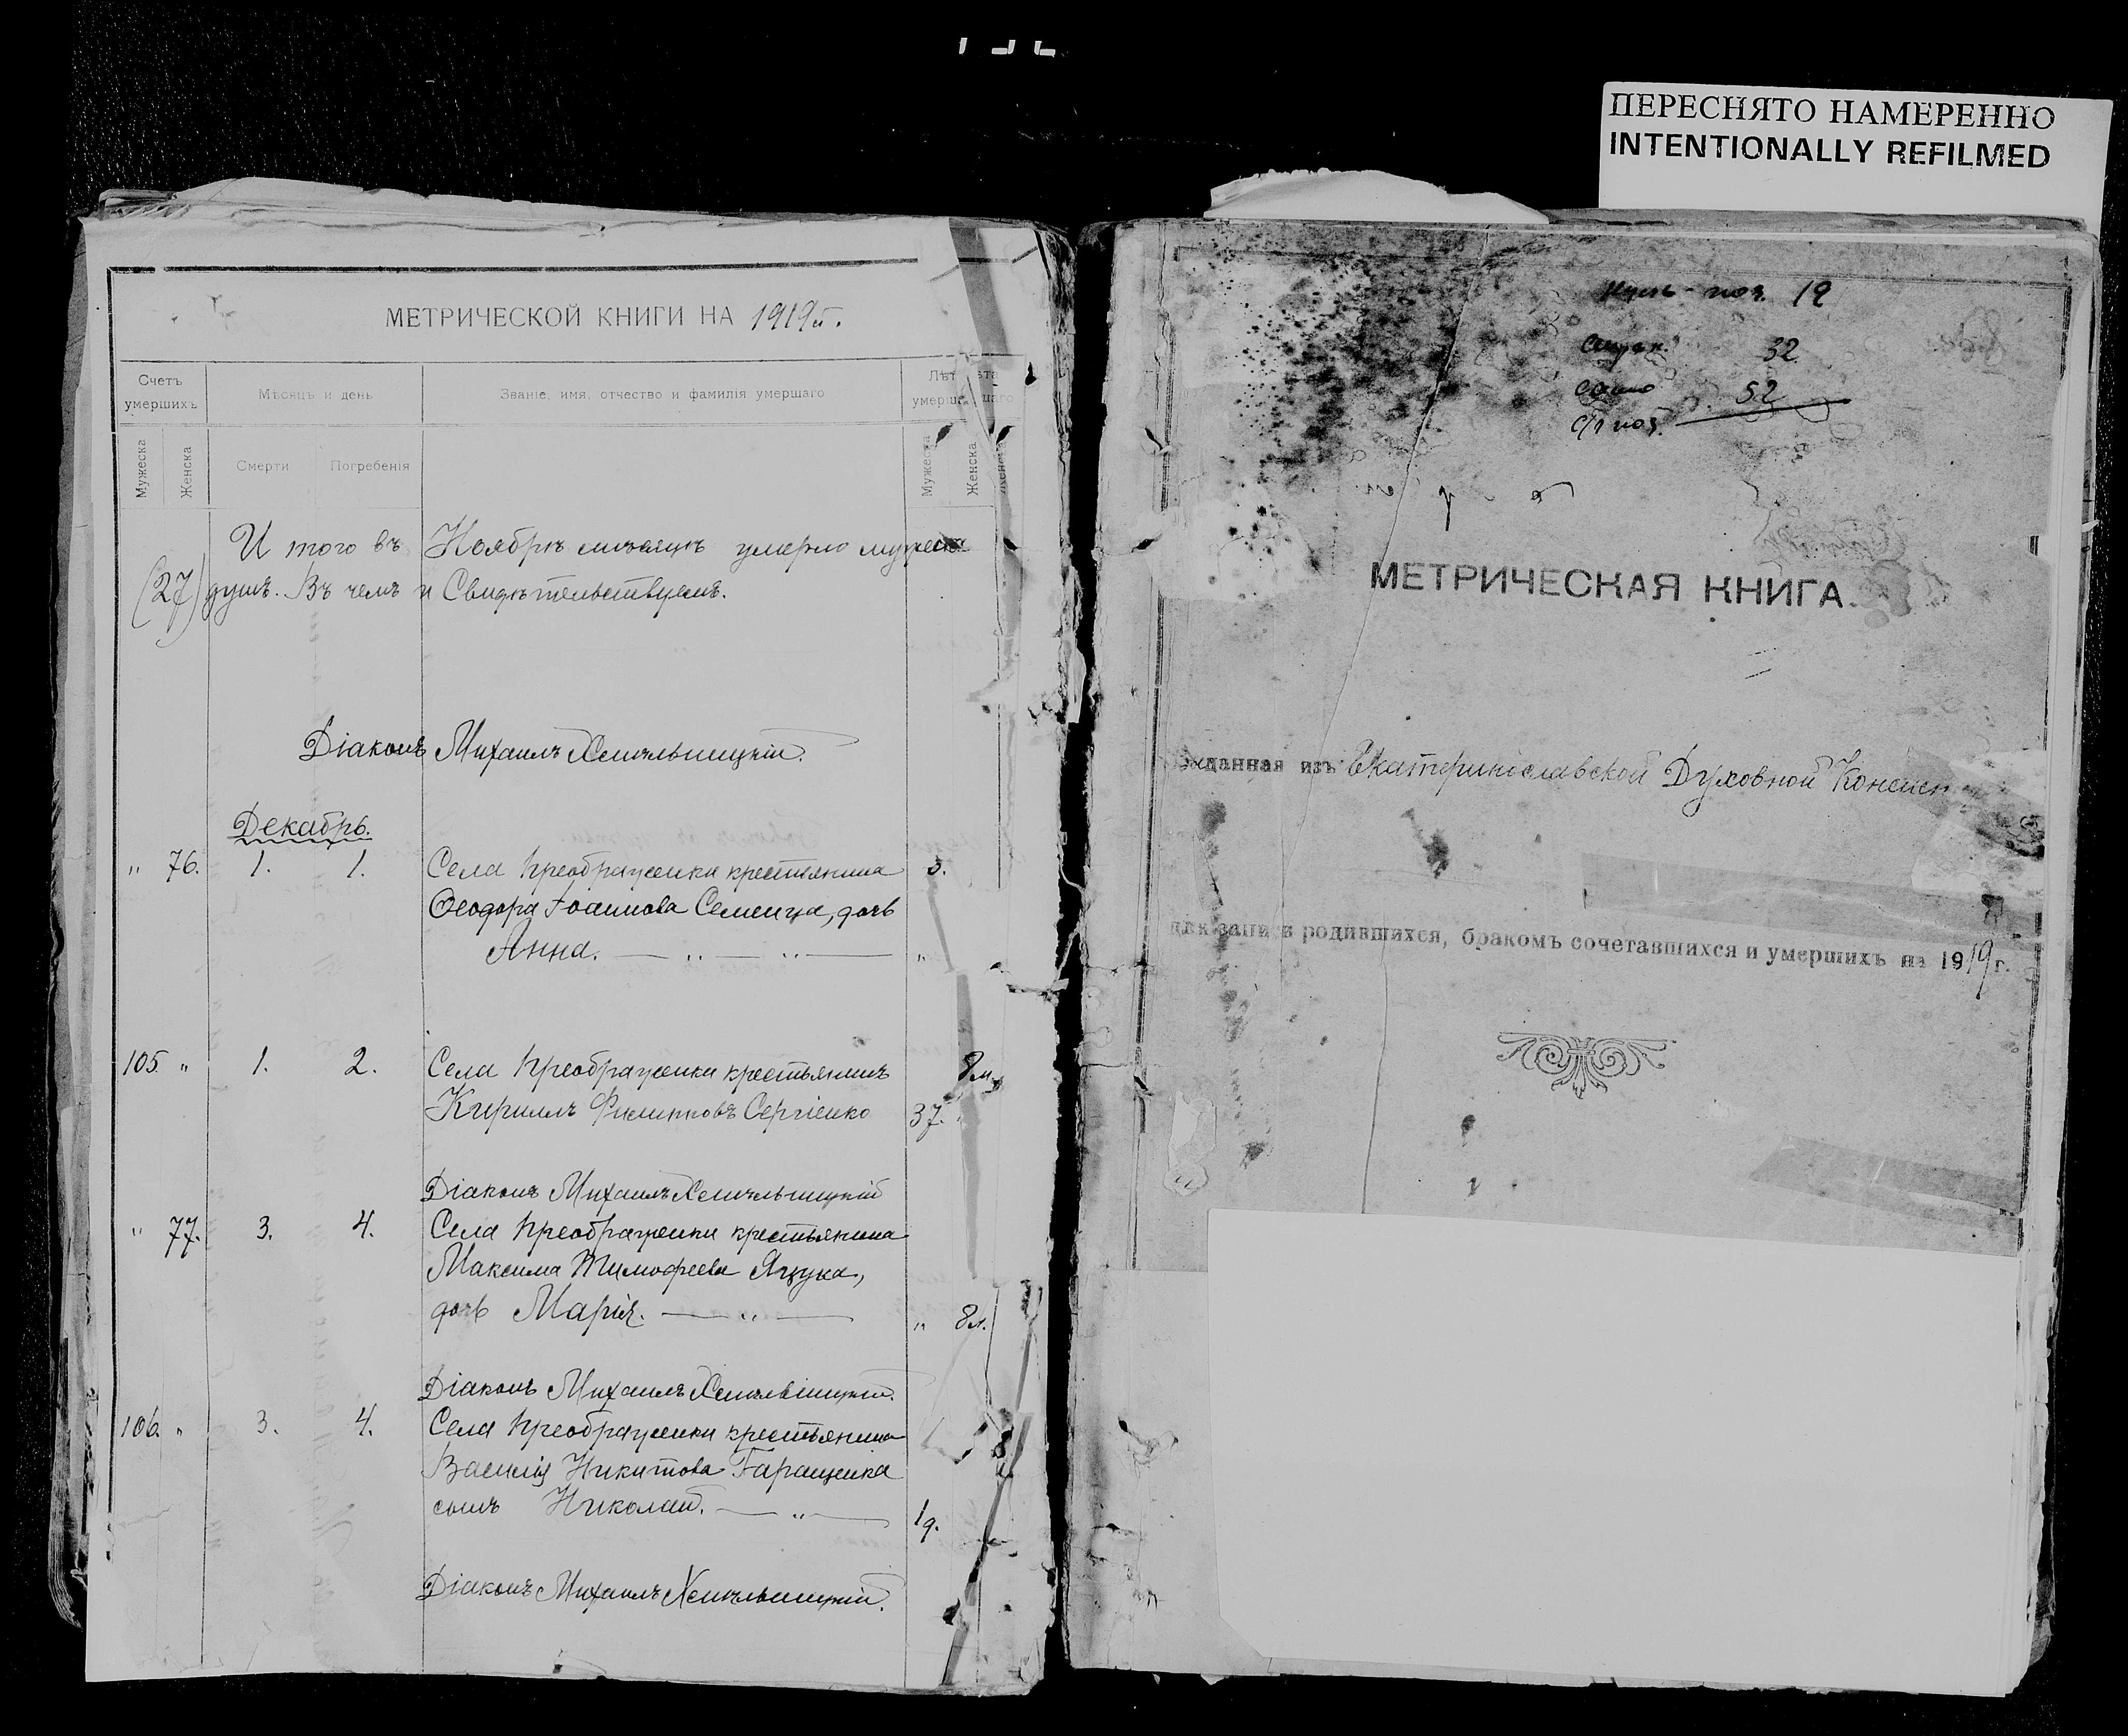 ПЕРЕСНЯТО НАМЕРЕННО
INTENTIONALLY REFILMED
МЕТРИЧЕСКОЙ КНИГИ НА 1919 г.
Счетъ умершихъ
Мѣсяцъ и день
Званіе, имя, отчество и фамилія умершаго
Лѣта умершаго
Мужеска
Женска
Смерти
Погребенія
Мужеска
Женска
И того въ Ноябрѣ мѣсяцѣ умерло мужеска
(27) душъ. Въ чемъ и Свидѣтельствуемъ.
Діаконъ Михаилъ Хмельницкій.
Декабрь.
" 76. 1. 1. Села Преображенки крестьянина
Ѳеодора Іоаннова Семенца, дочь
Анна. — " — " — "
105 " 1. 2. Села Преображенки крестьянинъ 8м.
Кириллъ Филипповъ Сергіенко 37.
Діаконъ Михаилъ Хмельницкій
" 77. 3. 4. Села Преображенки крестьянина
Максима Тимофеева Яцука,
дочь Марія. — " — " 8м.
Діаконъ Михаилъ Хмельницкій.
106 " 3. 4. Села Преображенки крестьянина
Василія Никитова Гаращенка
сынъ Николай. — " — 1д.
Діаконъ Михаилъ Хмельницкій.
19
32
52
МЕТРИЧЕСКАЯ КНИГА.
Выданная изъ Екатеринославской Духовной
для записи родившихся, бракомъ сочетавшихся и умершихъ на 1919 г.